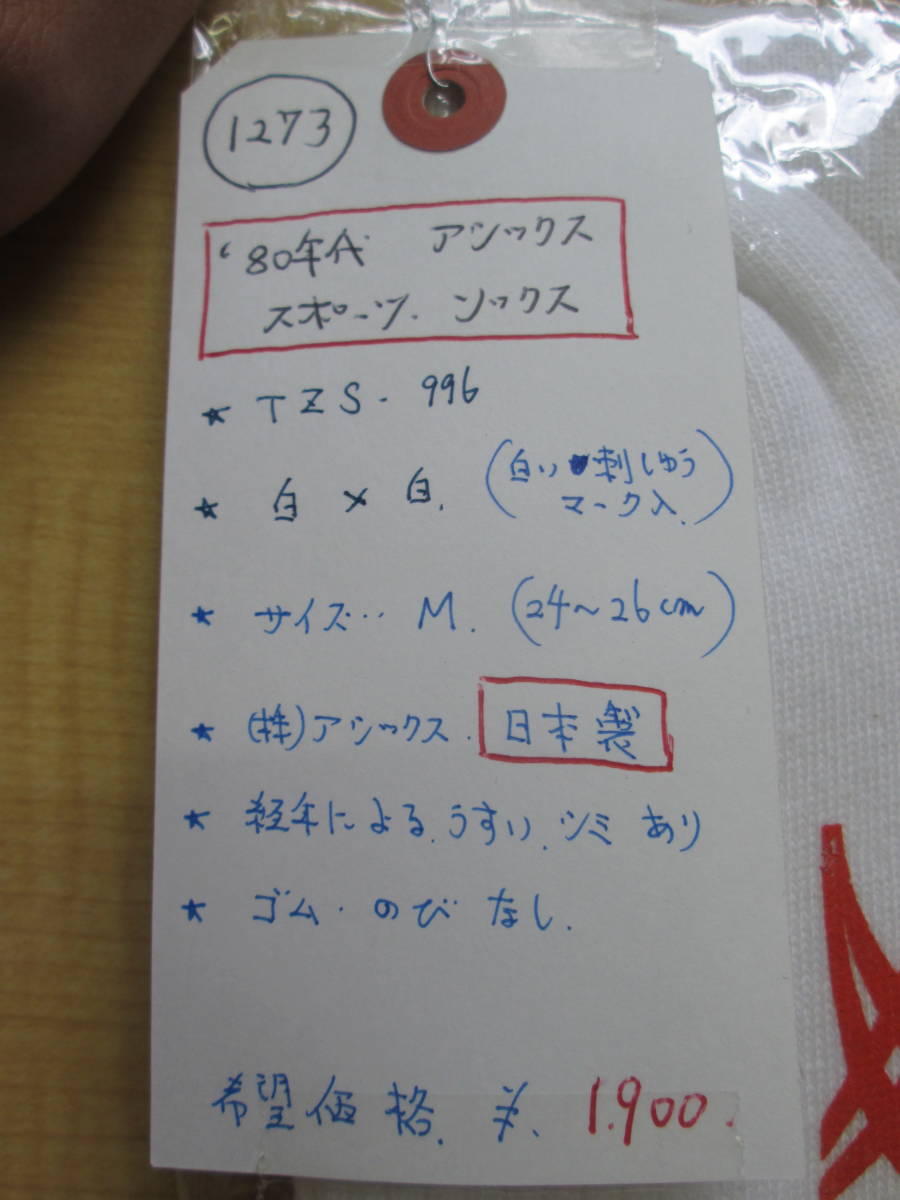 1273
'80年代 アシックス
スポーツ. ソックス
★ TZS. 996
★ 白 × 白. (白い刺しゅう
マーク入.)
★ サイズ‥ M. (24~26cm)
★ (株)アシックス. 日本製
★ 経年による.うすい.シミ あり
★ ゴム. のび なし.
希望価格. ¥. 1.900.